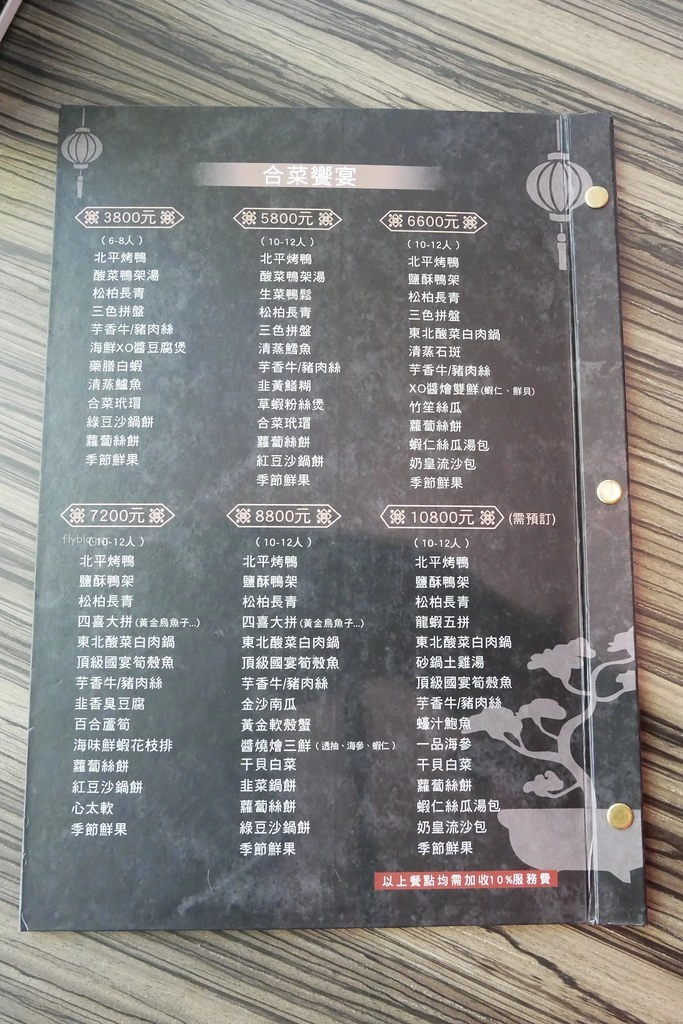 合菜饗宴
3800元
(6-8人)
北平烤鴨
酸菜鴨架湯
松柏長青
三色拼盤
芋香牛/豬肉絲
海鮮XO醬豆腐煲
藥膳白蝦
清蒸鱸魚
合菜玳瑁
綠豆沙鍋餅
蘿蔔絲餅
季節鮮果
5800元
(10-12人)
北平烤鴨
酸菜鴨架湯
生菜鴨鬆
松柏長青
三色拼盤
清蒸鱈魚
芋香牛/豬肉絲
韭黃鱔糊
草蝦粉絲煲
合菜玳瑁
蘿蔔絲餅
紅豆沙鍋餅
季節鮮果
6600元
(10-12人)
北平烤鴨
鹽酥鴨架
松柏長青
三色拼盤
東北酸菜白肉鍋
清蒸石斑
芋香牛/豬肉絲
XO醬燴雙鮮(蝦仁、鮮貝)
竹笙絲瓜
蘿蔔絲餅
蝦仁絲瓜湯包
奶皇流沙包
季節鮮果
7200元
(10-12人)
北平烤鴨
鹽酥鴨架
松柏長青
四喜大拼(黃金烏魚子...)
東北酸菜白肉鍋
頂級國宴筍殼魚
芋香牛/豬肉絲
韭香臭豆腐
百合蘆筍
海味鮮蝦花枝排
蘿蔔絲餅
紅豆沙鍋餅
心太軟
季節鮮果
8800元
(10-12人)
北平烤鴨
鹽酥鴨架
松柏長青
四喜大拼(黃金烏魚子...)
東北酸菜白肉鍋
頂級國宴筍殼魚
芋香牛/豬肉絲
金沙南瓜
黃金軟殼蟹
醬燒燴三鮮(透抽、海參、蝦仁)
干貝白菜
韭菜鍋餅
蘿蔔絲餅
綠豆沙鍋餅
季節鮮果
10800元 (需預訂)
(10-12人)
北平烤鴨
鹽酥鴨架
松柏長青
龍蝦五拼
東北酸菜白肉鍋
砂鍋土雞湯
頂級國宴筍殼魚
芋香牛/豬肉絲
蠔汁鮑魚
一品海參
干貝白菜
蘿蔔絲餅
蝦仁絲瓜湯包
奶皇流沙包
季節鮮果
以上餐點均需加收10%服務費